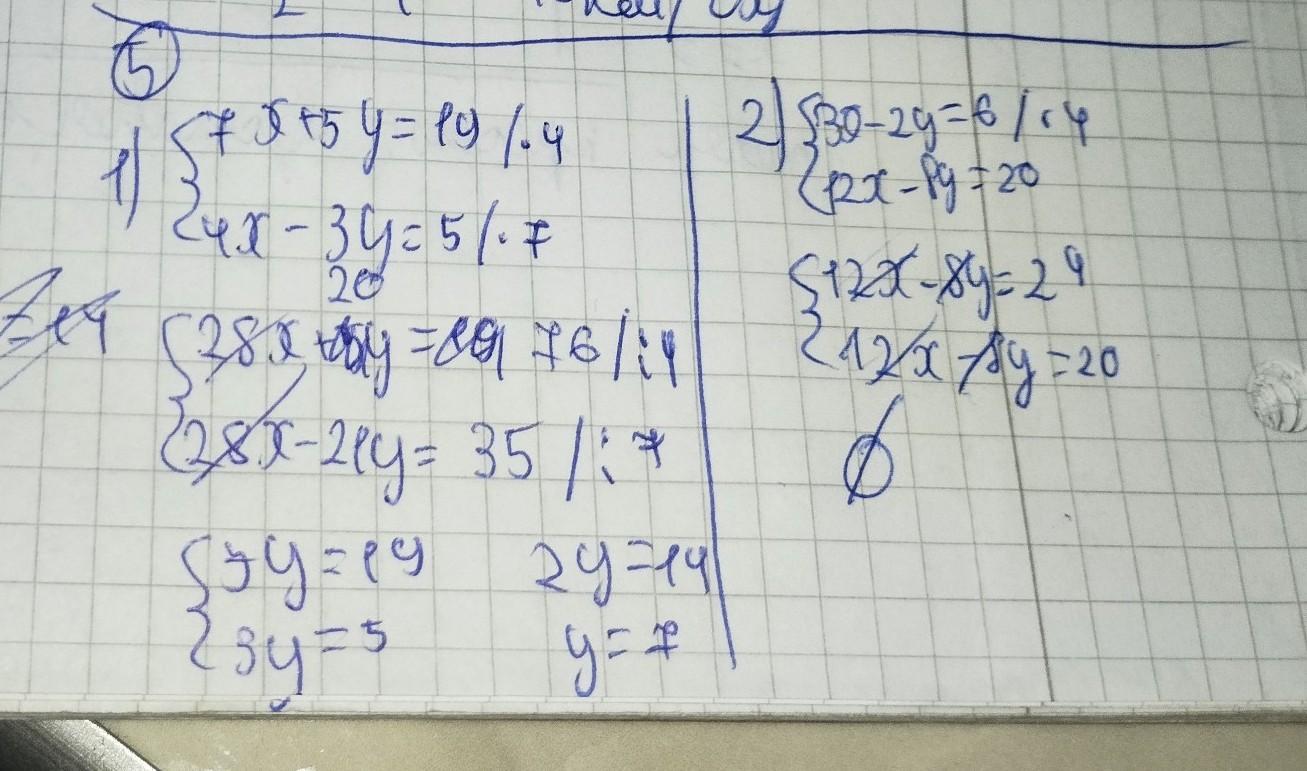 5
1) { 7x+5y=19 /·4
4x-3y=5 /·7
20
{ 28x+ y= 76 /:4
{ 28x-21y= 35 /:7
{ 5y=19 2y=14
{ 3y=5 y=7
2) { 30-2y=6 /·4
{ 12x-8y=20
{ 12x-8y=24
{ 12x-8y=20
∅